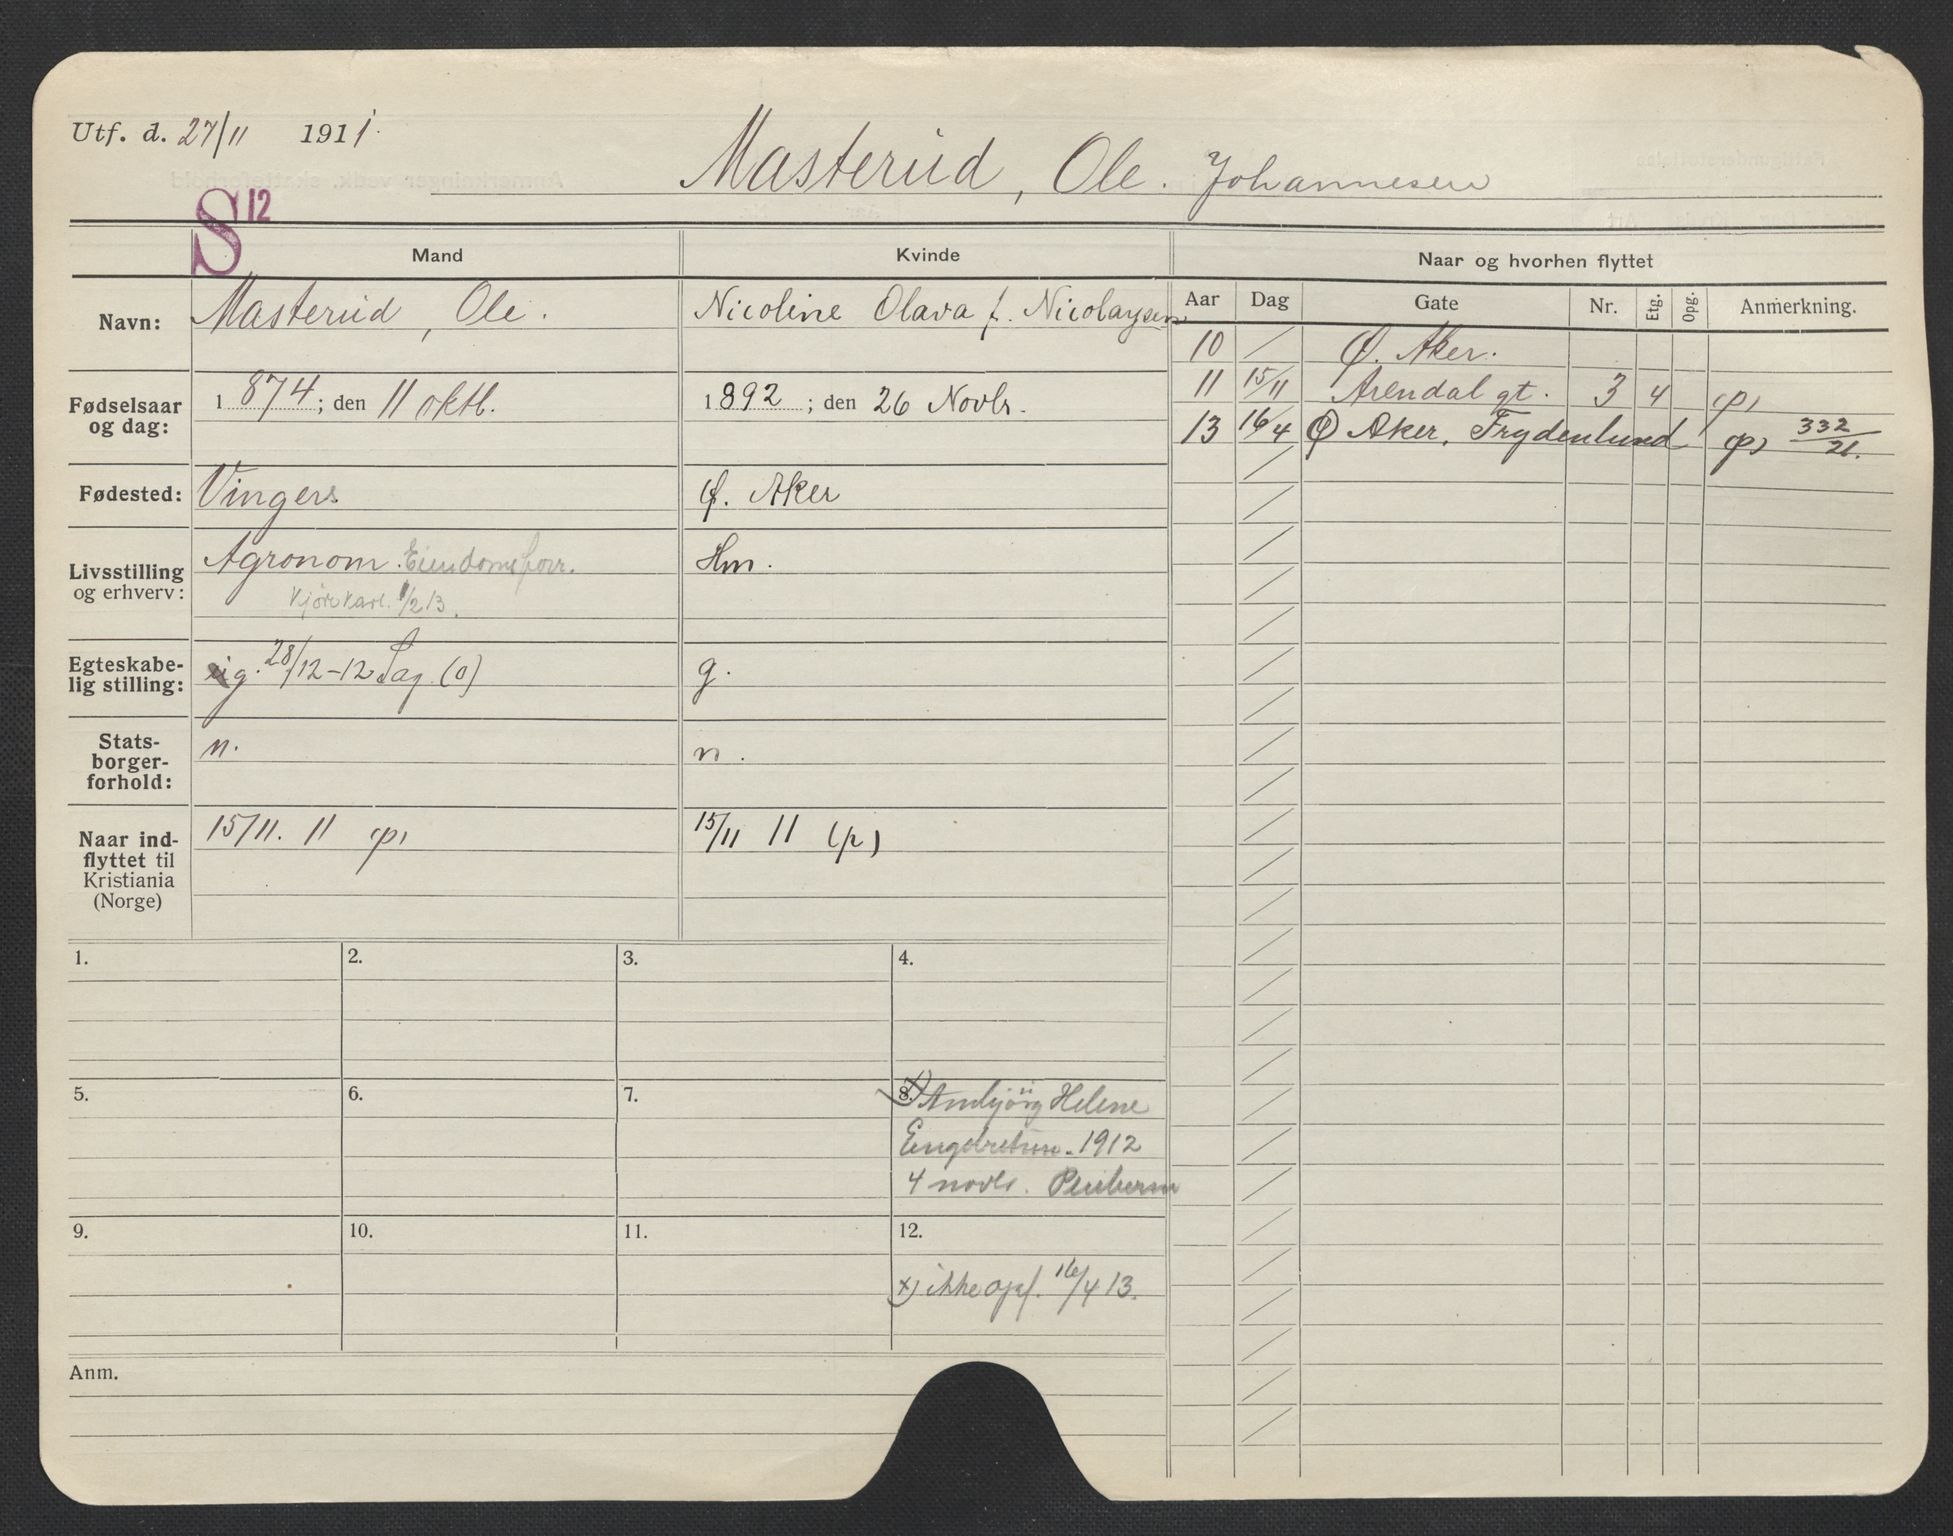 Utf. d. 27/11 1911.
Masterud, Ole. Johannesen
S 12
Mand Kvinde Naar og hvorhen flyttet
Navn: Masterud, Ole. Nicoline Olava f. Nicolaysen
Aar Dag Gate Nr. Etg. Opg. Anmerkning.
10 Ø. Aker.
11 15/11 Arendal gt. 3 4 (p)
13 16/4 Ø Aker, Frydenlund (p) 332/21.
Fødselsaar og dag: 1874; den 11 oktb. 1892; den 26 Novbr.
Fødested: Vingers Ø. Aker
Livsstilling og erhverv: Agronom. Eiendomsforr. Hm.
Kjørekarl. 1/2 13.
Egteskabelig stilling: g. 28/12-12 Sag. (o) g.
Statsborgerforhold: n. n.
Naar indflyttet til Kristiania (Norge) 15/11. 11 (p) 15/11 11 (p)
1. 2. 3. 4.
5. 6. 7. 8. x) Helene
Engebretsen. 1912
4 novbr.
9. 10. 11. 12.
x) ikke opf. 16/4 13.
Anm.